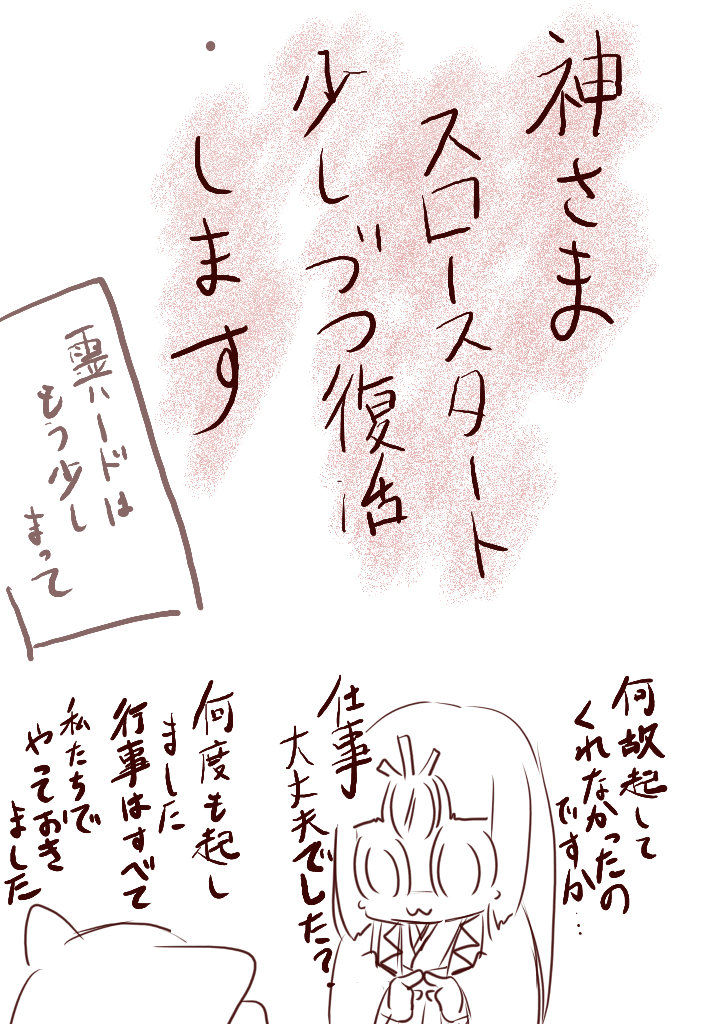 神さま
スロースタート
少しづつ復活
します
霊ハードは
もう少し
まって
何故起して
くれなかったの
ですか…
仕事
大丈夫でした?
何度も起し
ました
行事はすべて
私たちで
やっておき
ました